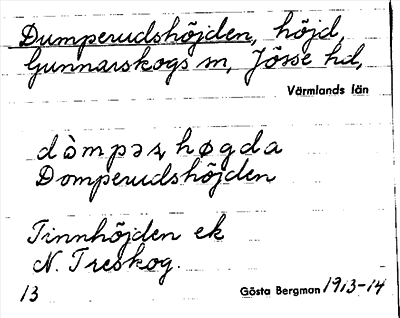 Dumperudshöjden, höjd,
Gunnarskogs sn, Jösse hd,
Värmlands län
dòmpəʂ høgda
Domperudshöjden
Finnhöjden ek
N. Treskog.
13 Gösta Bergman 1913-14